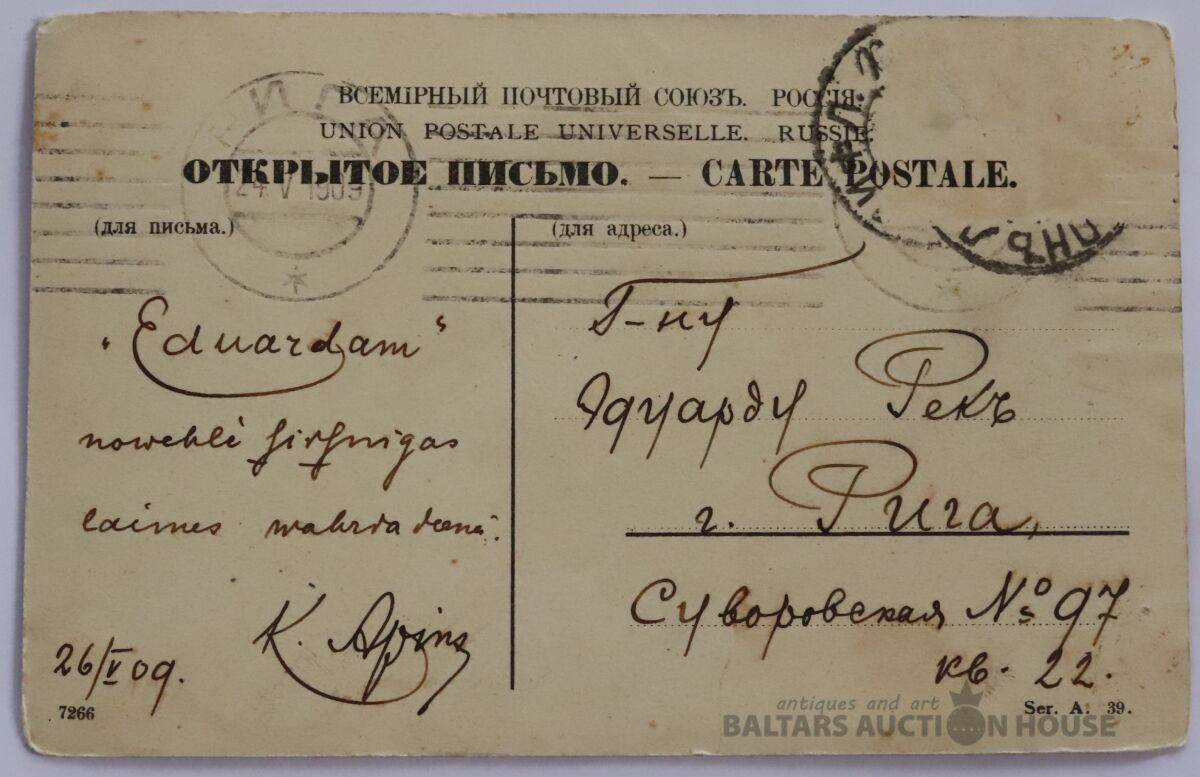 ВСЕМІРНЫЙ ПОЧТОВЫЙ СОЮЗЪ. РОССІЯ.
UNION POSTALE UNIVERSELLE. RUSSIE.
ОТКРЫТОЕ ПИСЬМО. — CARTE POSTALE.
РИГА
24 V 1909
(для письма.)
„Eduardam“
nowehlē sirsnigas
laimes wahrda deenā.
K. Apins
26/V 09.
7266
(для адреса.)
Г-ну
Эдуарду Рекъ
г. Рига,
Суворовская № 97
кв. 22.
Ser. A. 39.
antiques and art
BALTARS AUCTION HOUSE